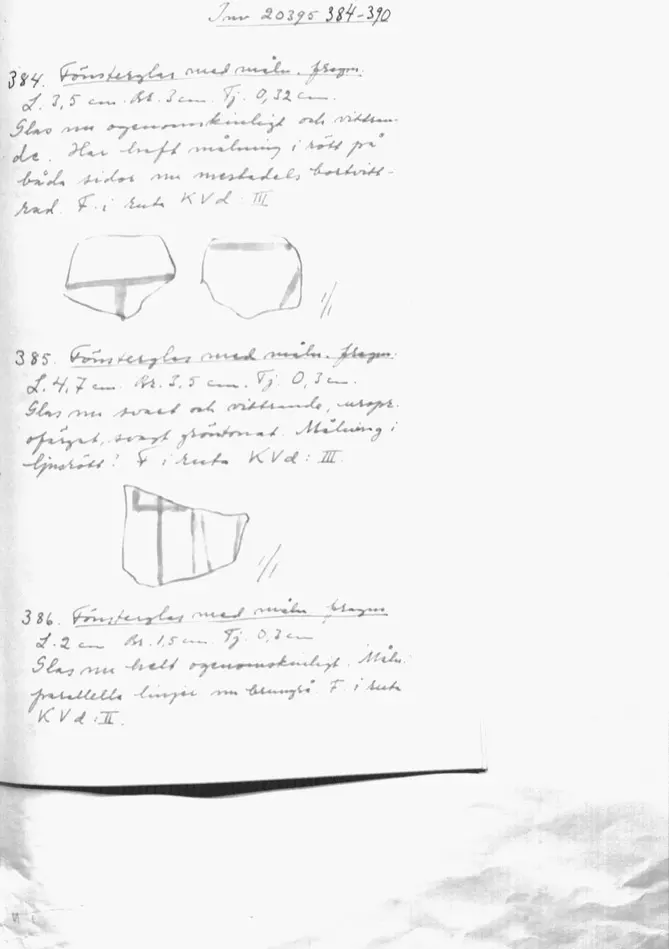 Inv 20395 384-390
384. Fönsterglas med måln. fragm.
L. 3,5 cm. Br. 3 cm. Tj. 0,32 cm.
Glas nu ogenomskinligt och vittran-
de. Har haft målning i rött på
båda sidor nu mestadels bortvitt-
rad. F. i ruta K V d : III
1/1
385. Fönsterglas med måln. fragm.
L. 4,7 cm. Br. 3,5 cm. Tj. 0,3 cm.
Glas nu svart och vittrande, urspr.
ofärgat, svagt gröntonat. Målning i
ljusrött! F i ruta K V d : III.
1/1
386. Fönsterglas med måln fragm
L. 2 cm Br. 1,5 cm. Tj. 0,3 cm
Glas nu helt ogenomskinligt. Måln.
parallella linjer nu brungrå F. i ruta
K V d : II.